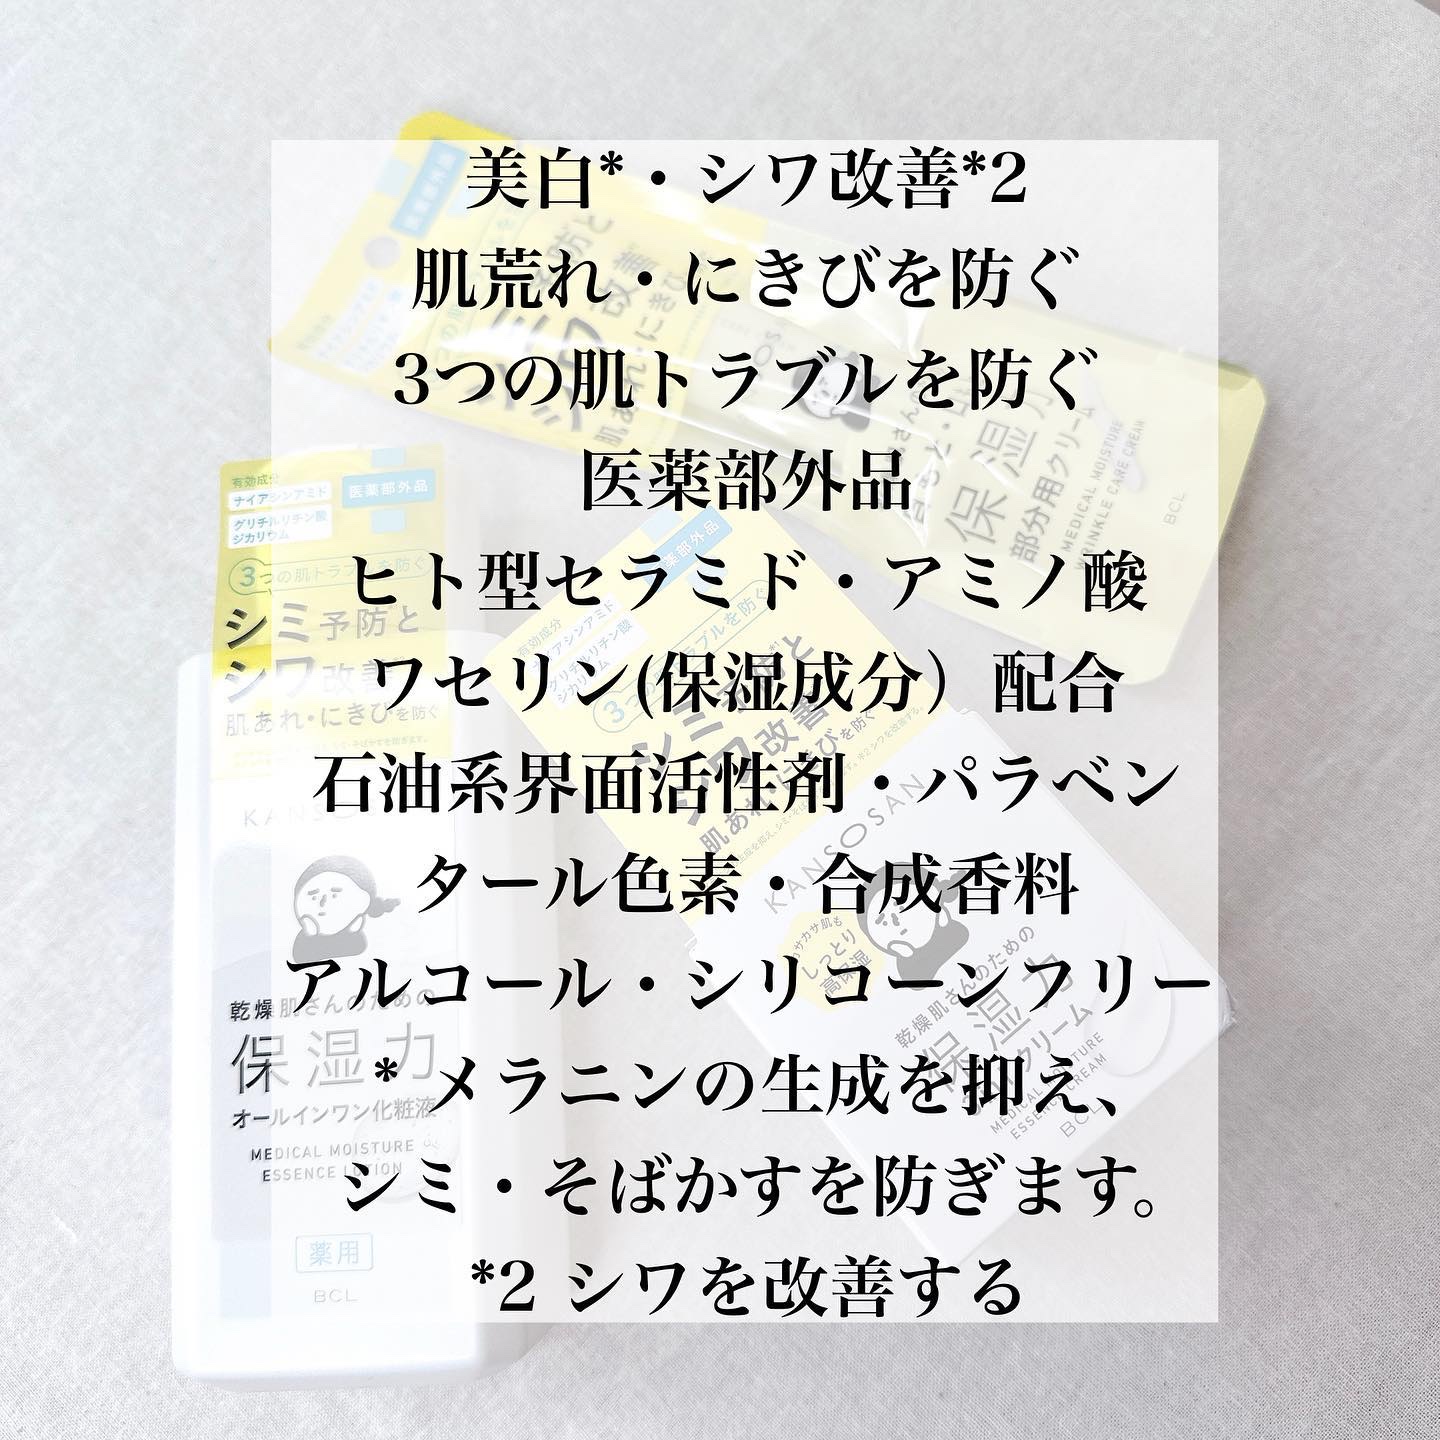 美白*・シワ改善*2
肌荒れ・にきびを防ぐ
3つの肌トラブルを防ぐ
医薬部外品
ヒト型セラミド・アミノ酸
ワセリン(保湿成分）配合
石油系界面活性剤・パラベン
タール色素・合成香料
アルコール・シリコーンフリー
* メラニンの生成を抑え、
シミ・そばかすを防ぎます。
*2 シワを改善する
有効成分
ナイアシンアミド
グリチルリチン酸
ジカリウム
医薬部外品
3つの肌トラブルを防ぐ
シミ予防と
シワ改善
肌あれ・にきびを防ぐ
乾燥肌さんのための
保湿力
オールインワン化粧液
MEDICAL MOISTURE
ESSENCE LOTION
薬用
BCL
有効成分
ナイアシンアミド
グリチルリチン酸
ジカリウム
3つの肌トラブルを防ぐ
シワ改善
肌あれ・にきびを防ぐ
KANSOSAN
しっとり
高保湿
乾燥肌さんのための
保湿力
MEDICAL MOISTURE
ESSENCE CREAM
BCL
保湿力
部分用クリーム
MEDICAL MOISTURE
WRINKLE CARE CREAM
BCL